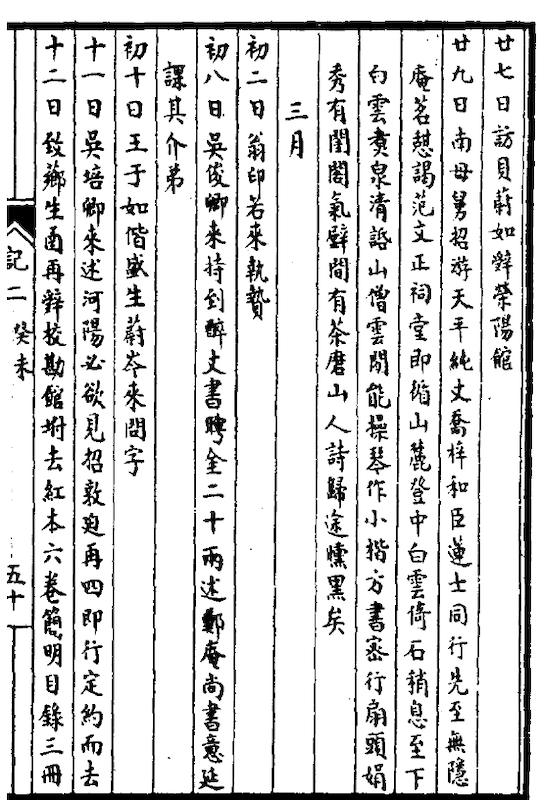 廿七日訪貝蔚如辭榮陽館
廿九日南母舅招游天平純丈喬梓和臣蓮士同行先至無隱
庵茗憇謁范文正祠堂即循山麓登中白雲倚石稍息至下
白雲煑泉清話山僧雲閒能操琴作小楷方書密行扇頭娟
秀有閨閤氣壁間有茶磨山人詩歸途曛黑矣
三月
初二日翁印若來執贄
初八日吳俊卿來持到醉丈書聘金二十兩述鄭庵尚書意延
課其介弟
初十日王于如偕盛生蔚岑來問字
十一日吳培卿來述河陽必欲見招敦迫再四即行定約而去
十二日致薌生函再辭校勘館坿去紅本六卷簡明目錄三冊
記二 癸未
五十